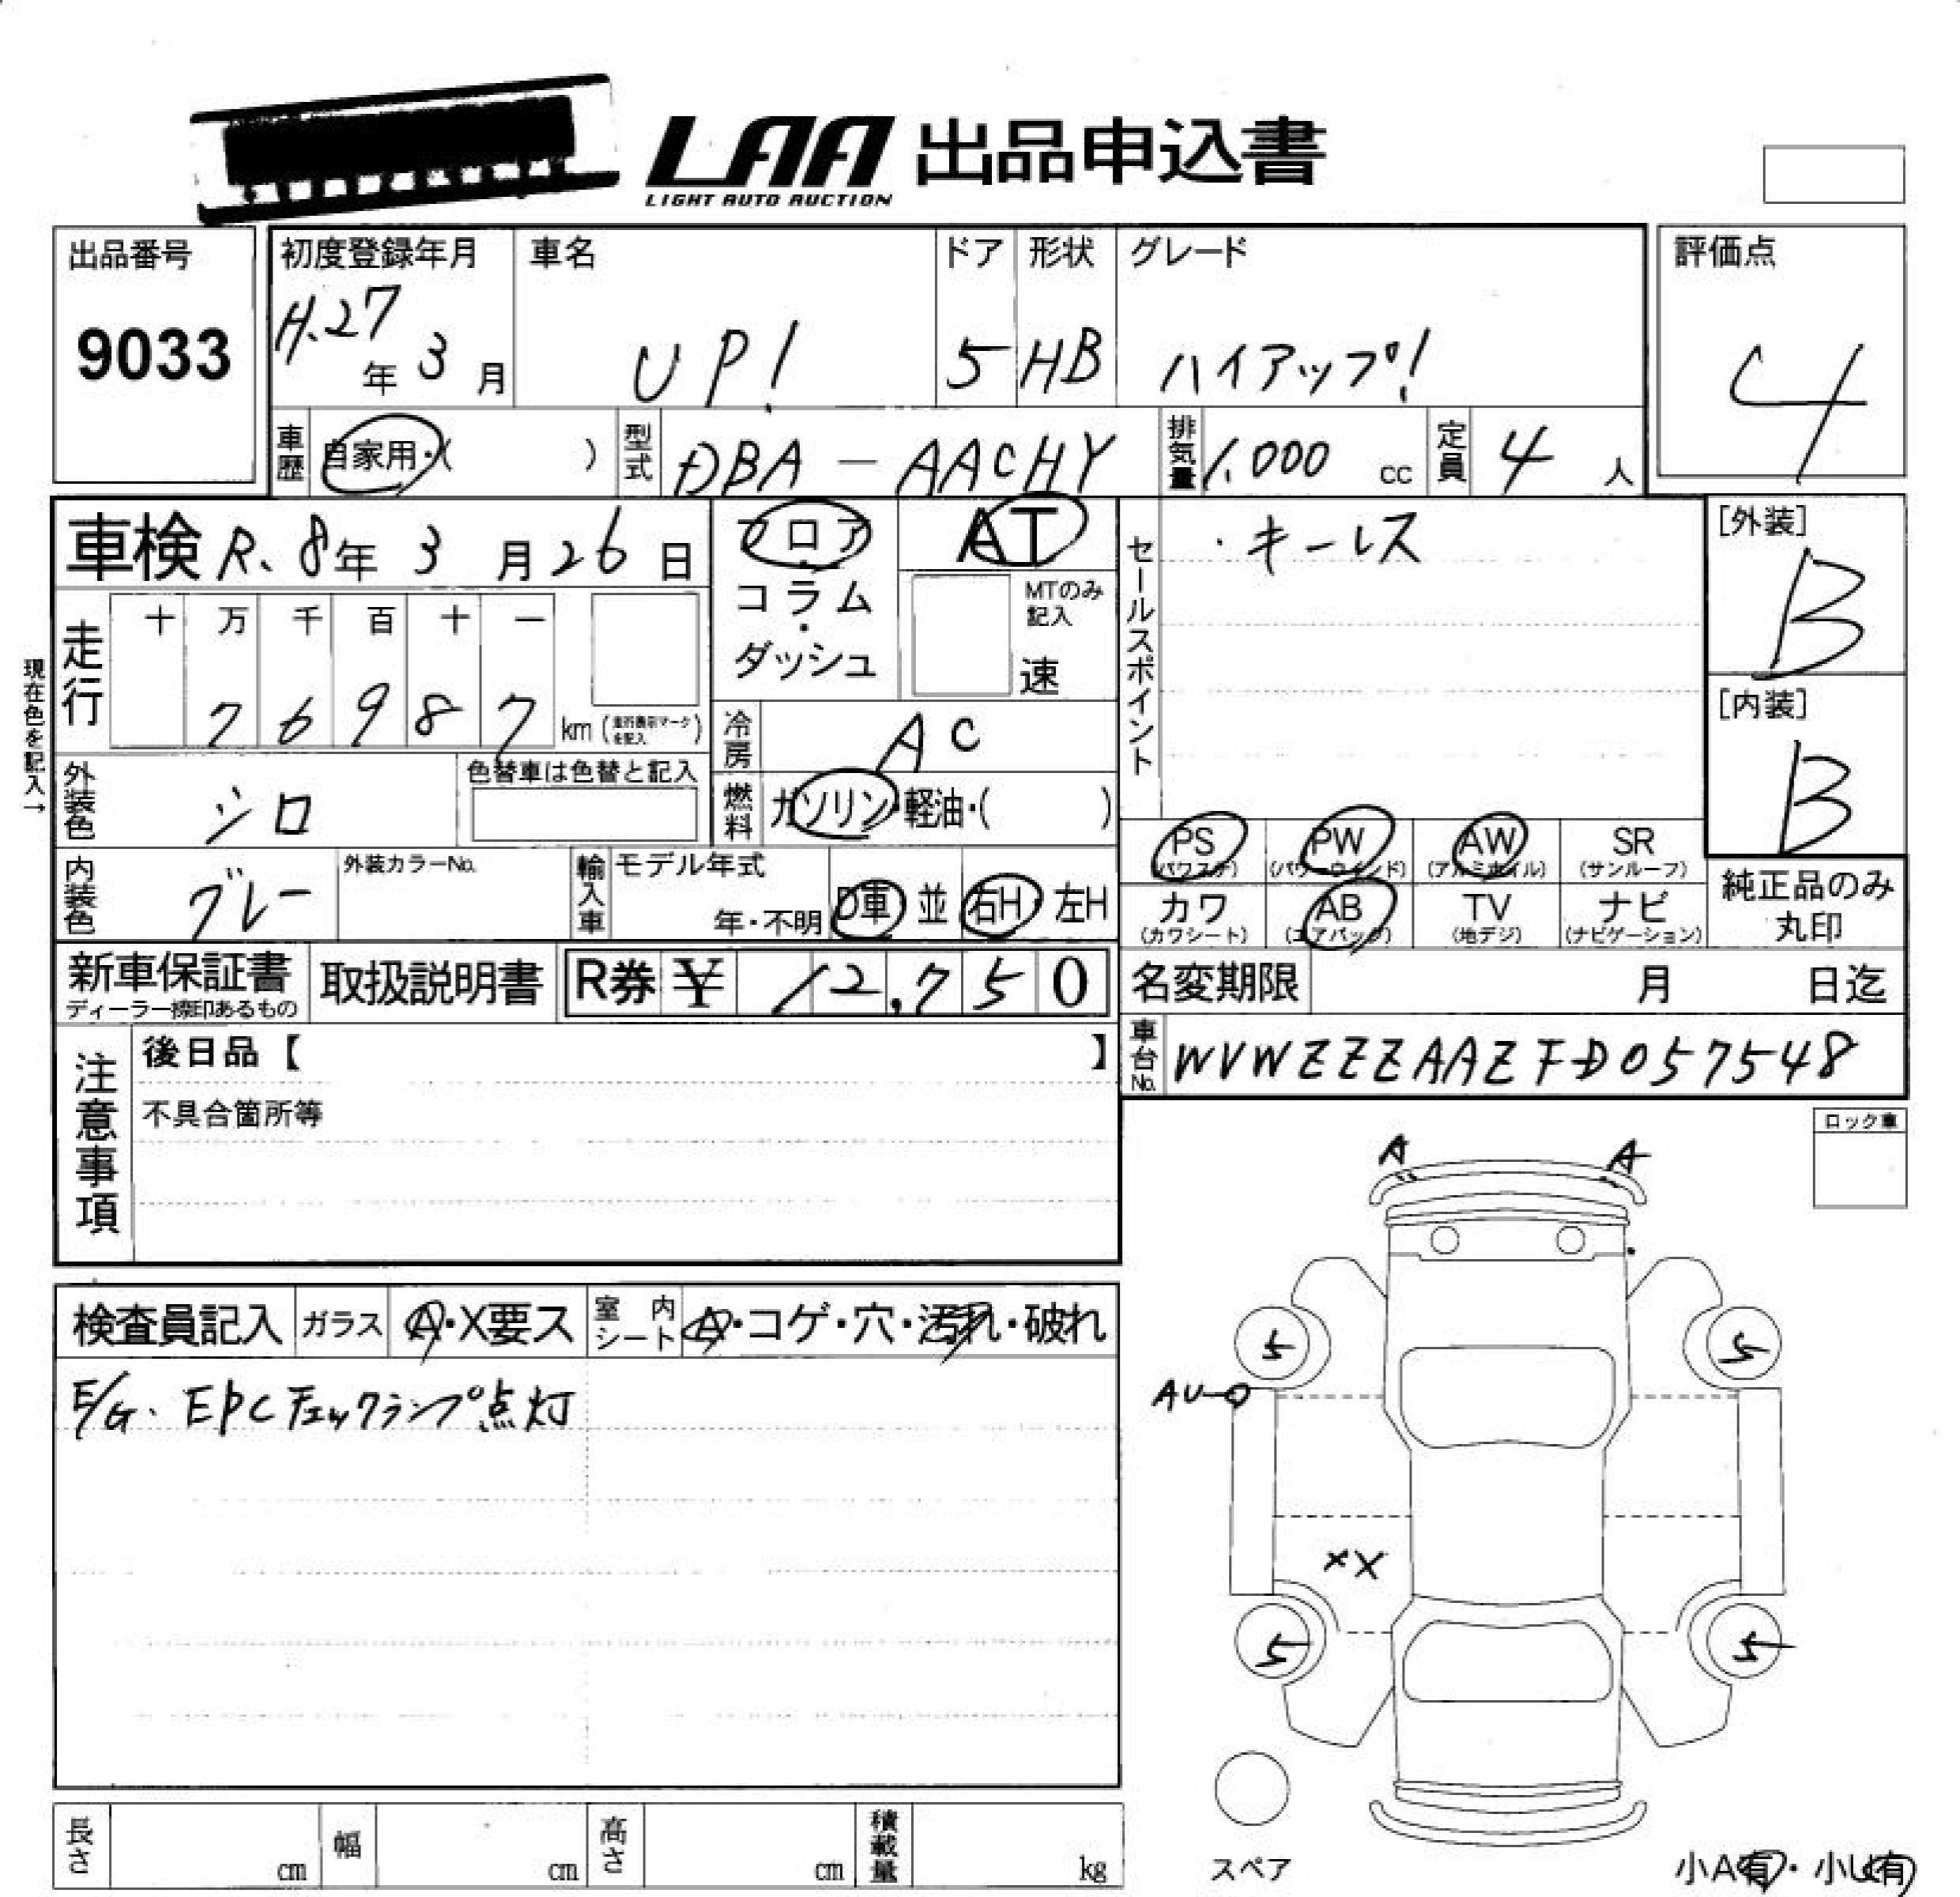 LAA 出品申込書
LIGHT AUTO AUCTION
出品番号
9033
初度登録年月
H.27年 3月
車名
UP!
ドア
5
形状
HB
グレード
ハイアップ!
評価点
4
車歴 自家用・( )
型式 DBA - AACHY
排気量 1,000 cc
定員 4 人
車検 R.8年 3月26日
フロア・コラム・ダッシュ
AT
MTのみ記入
速
現在色を記入→
走行
十 万 千 百 十 一
7 6 9 8 7 km (走行表示マークを記入)
冷房 AC
外装色 シロ
色替車は色替と記入
燃料 ガソリン・軽油・( )
内装色 グレー
外装カラーNo.
輸入車 モデル年式
年・不明
D車 並 右H・左H
セールスポイント
・キーレス
[外装]
B
[内装]
B
PS (パワステ)
PW (パワーウインド)
AW (アルミホイル)
SR (サンルーフ)
カワ (カワシート)
AB (エアバッグ)
TV (地デジ)
ナビ (ナビゲーション)
純正品のみ
丸印
新車保証書
ディーラー捺印あるもの
取扱説明書
R券 ¥ 12,750
名変期限 月 日迄
車台No. WVWZZZAAZFD057548
注意事項
後日品【 】
不具合箇所等
ロック車
検査員記入 ガラス A・X要ス 室内シート A・コゲ・穴・汚れ・破れ
E/G. EPCチェックランプ点灯
A A
5 5
AU
XX
5 5
スペア
小A有・小U有
長さ cm 幅 cm 高さ cm 積載量 kg